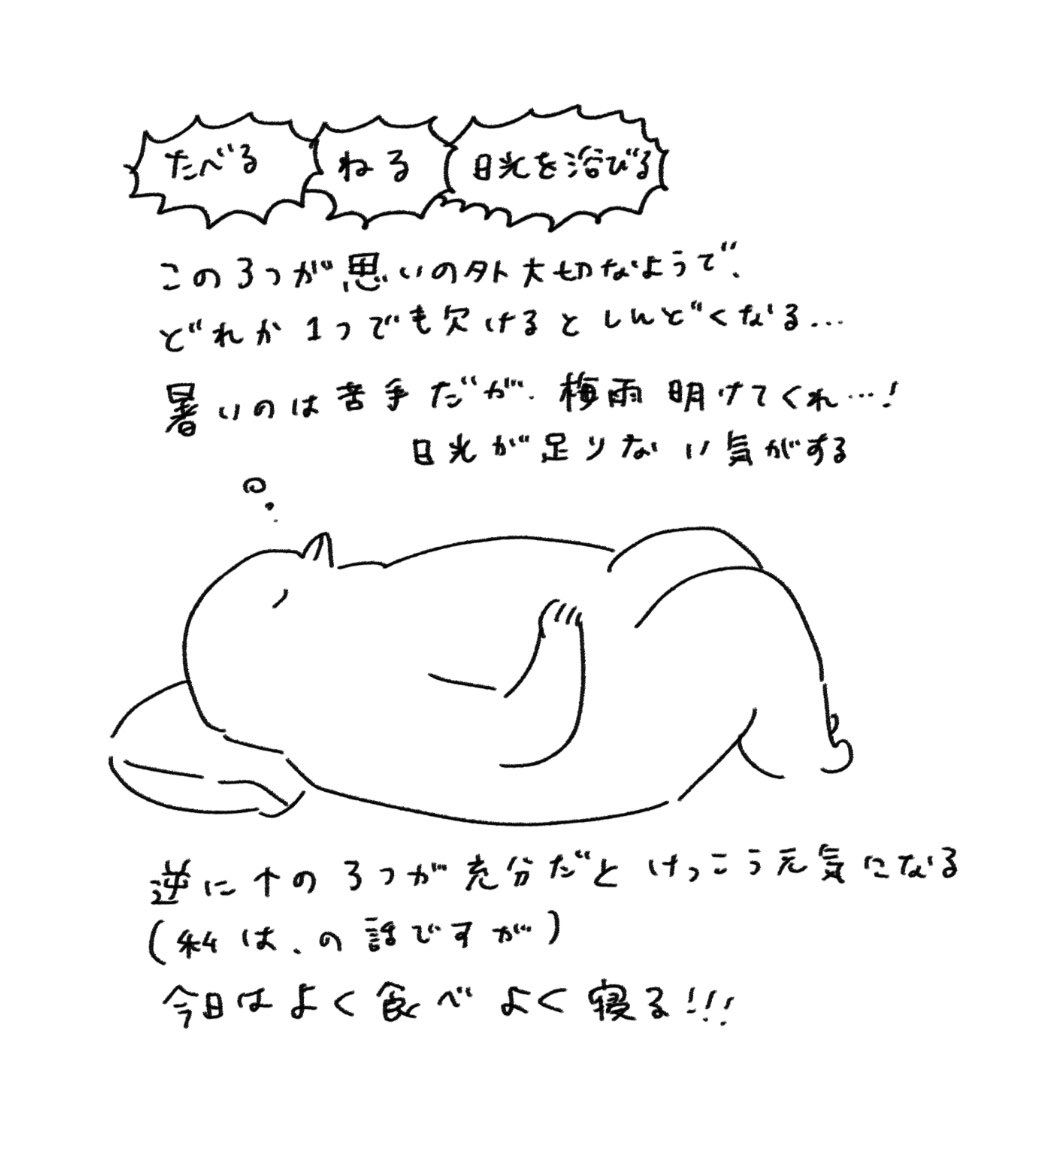 たべる ねる 日光を浴びる
この3つが思いの外大切なようで、
どれか1つでも欠けるとしんどくなる…
暑いのは苦手だが、梅雨明けてくれ…!
日光が足りない気がする
逆に↑の3つが充分だとけっこう元気になる
(私は、の話ですが)
今日はよく食べよく寝る!!!